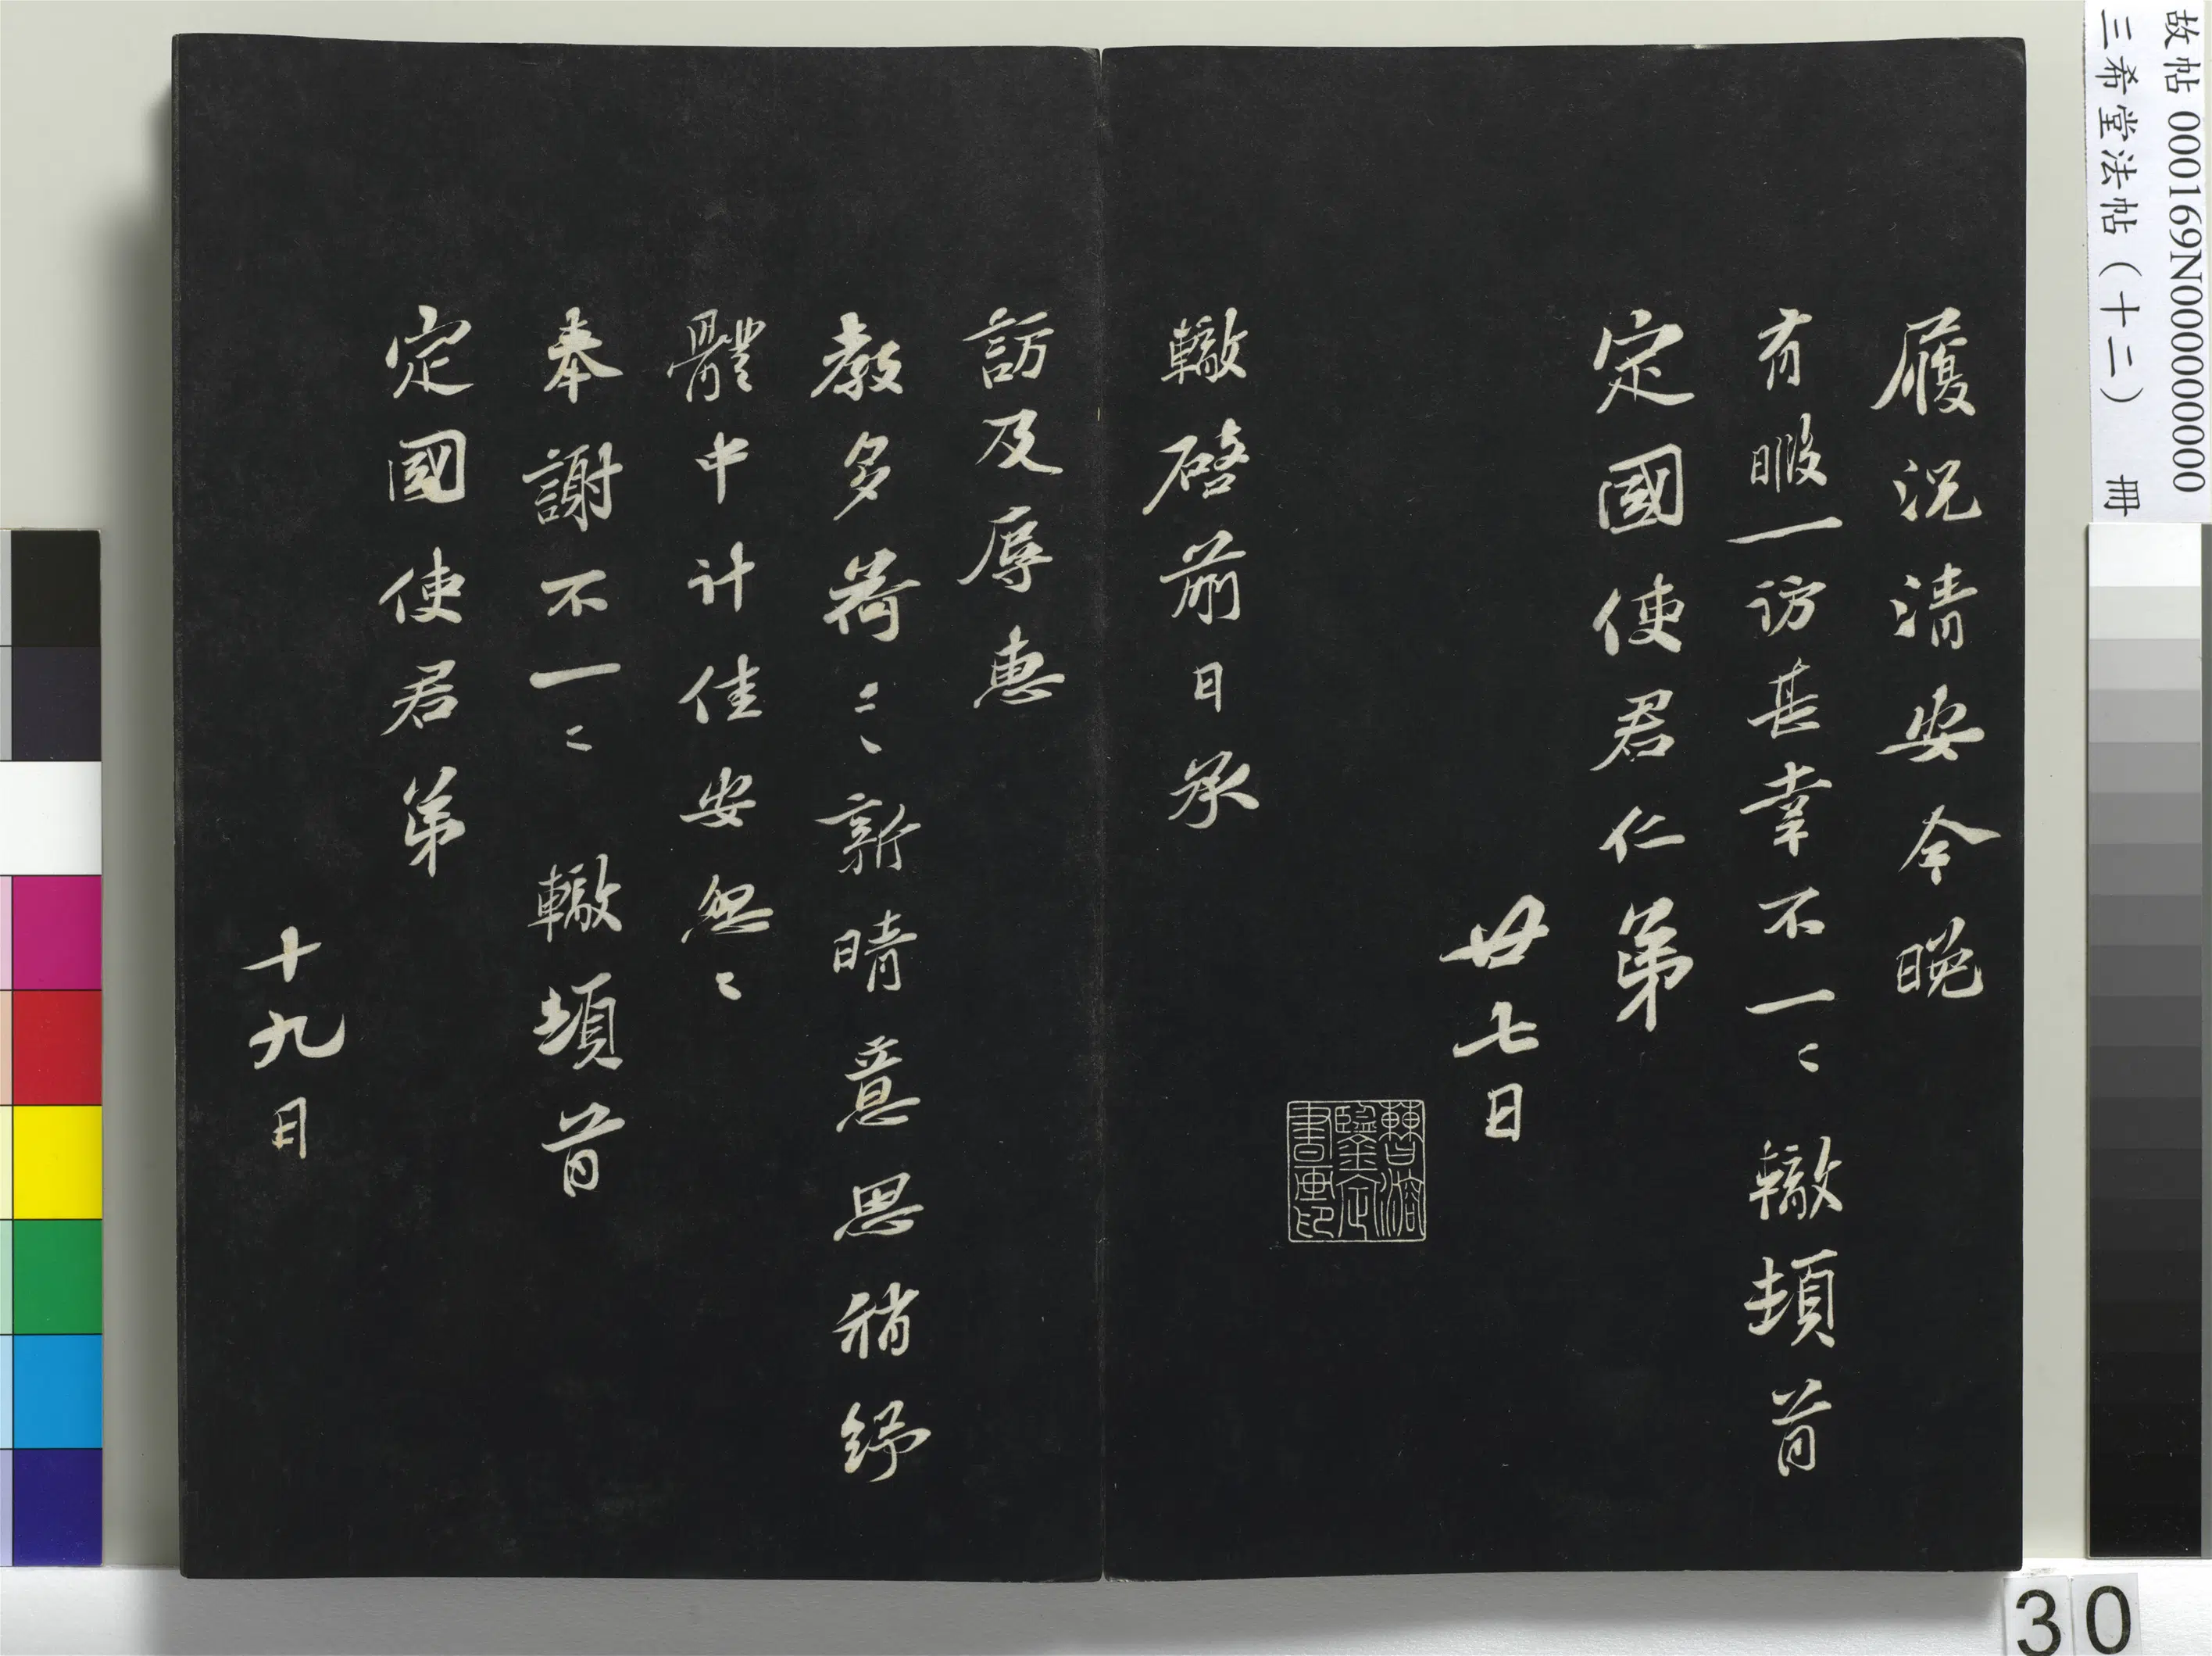 故帖 000169N000000000
三希堂法帖（十二） 冊
履況清安今晚
有暇一訪甚幸不一〻 轍頓首
定國使君仁弟
廿七日
曹溶
鑒定
書畫印
轍啓前日承
訪及辱惠
教多荷〻〻新晴意思稍紓
體中計佳安怱〻
奉謝不一〻 轍頓首
定國使君弟
十九日
30